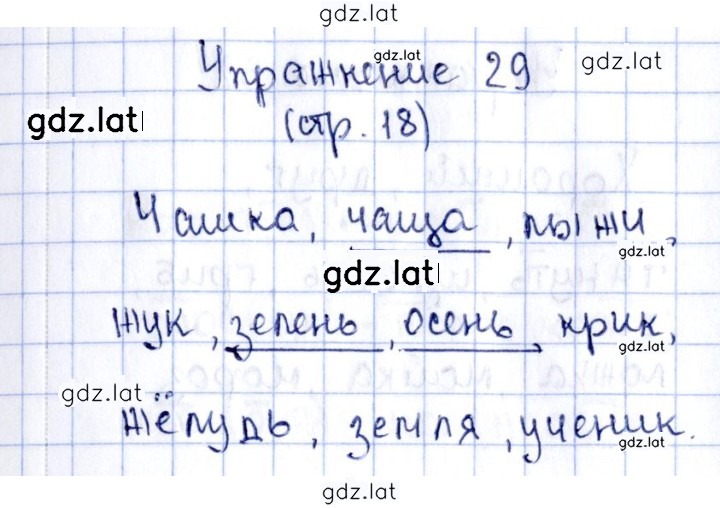 gdz.lat
gdz.lat
Упражнение 29
gdz.lat
gdz.lat
(стр. 18)
Чашка, чаща, лыжи,
gdz.lat
gdz.lat
жук, зелень, осень, крик,
gdz.lat
gdz.lat
жёлудь, земля, ученик.
gdz.lat
gdz.lat